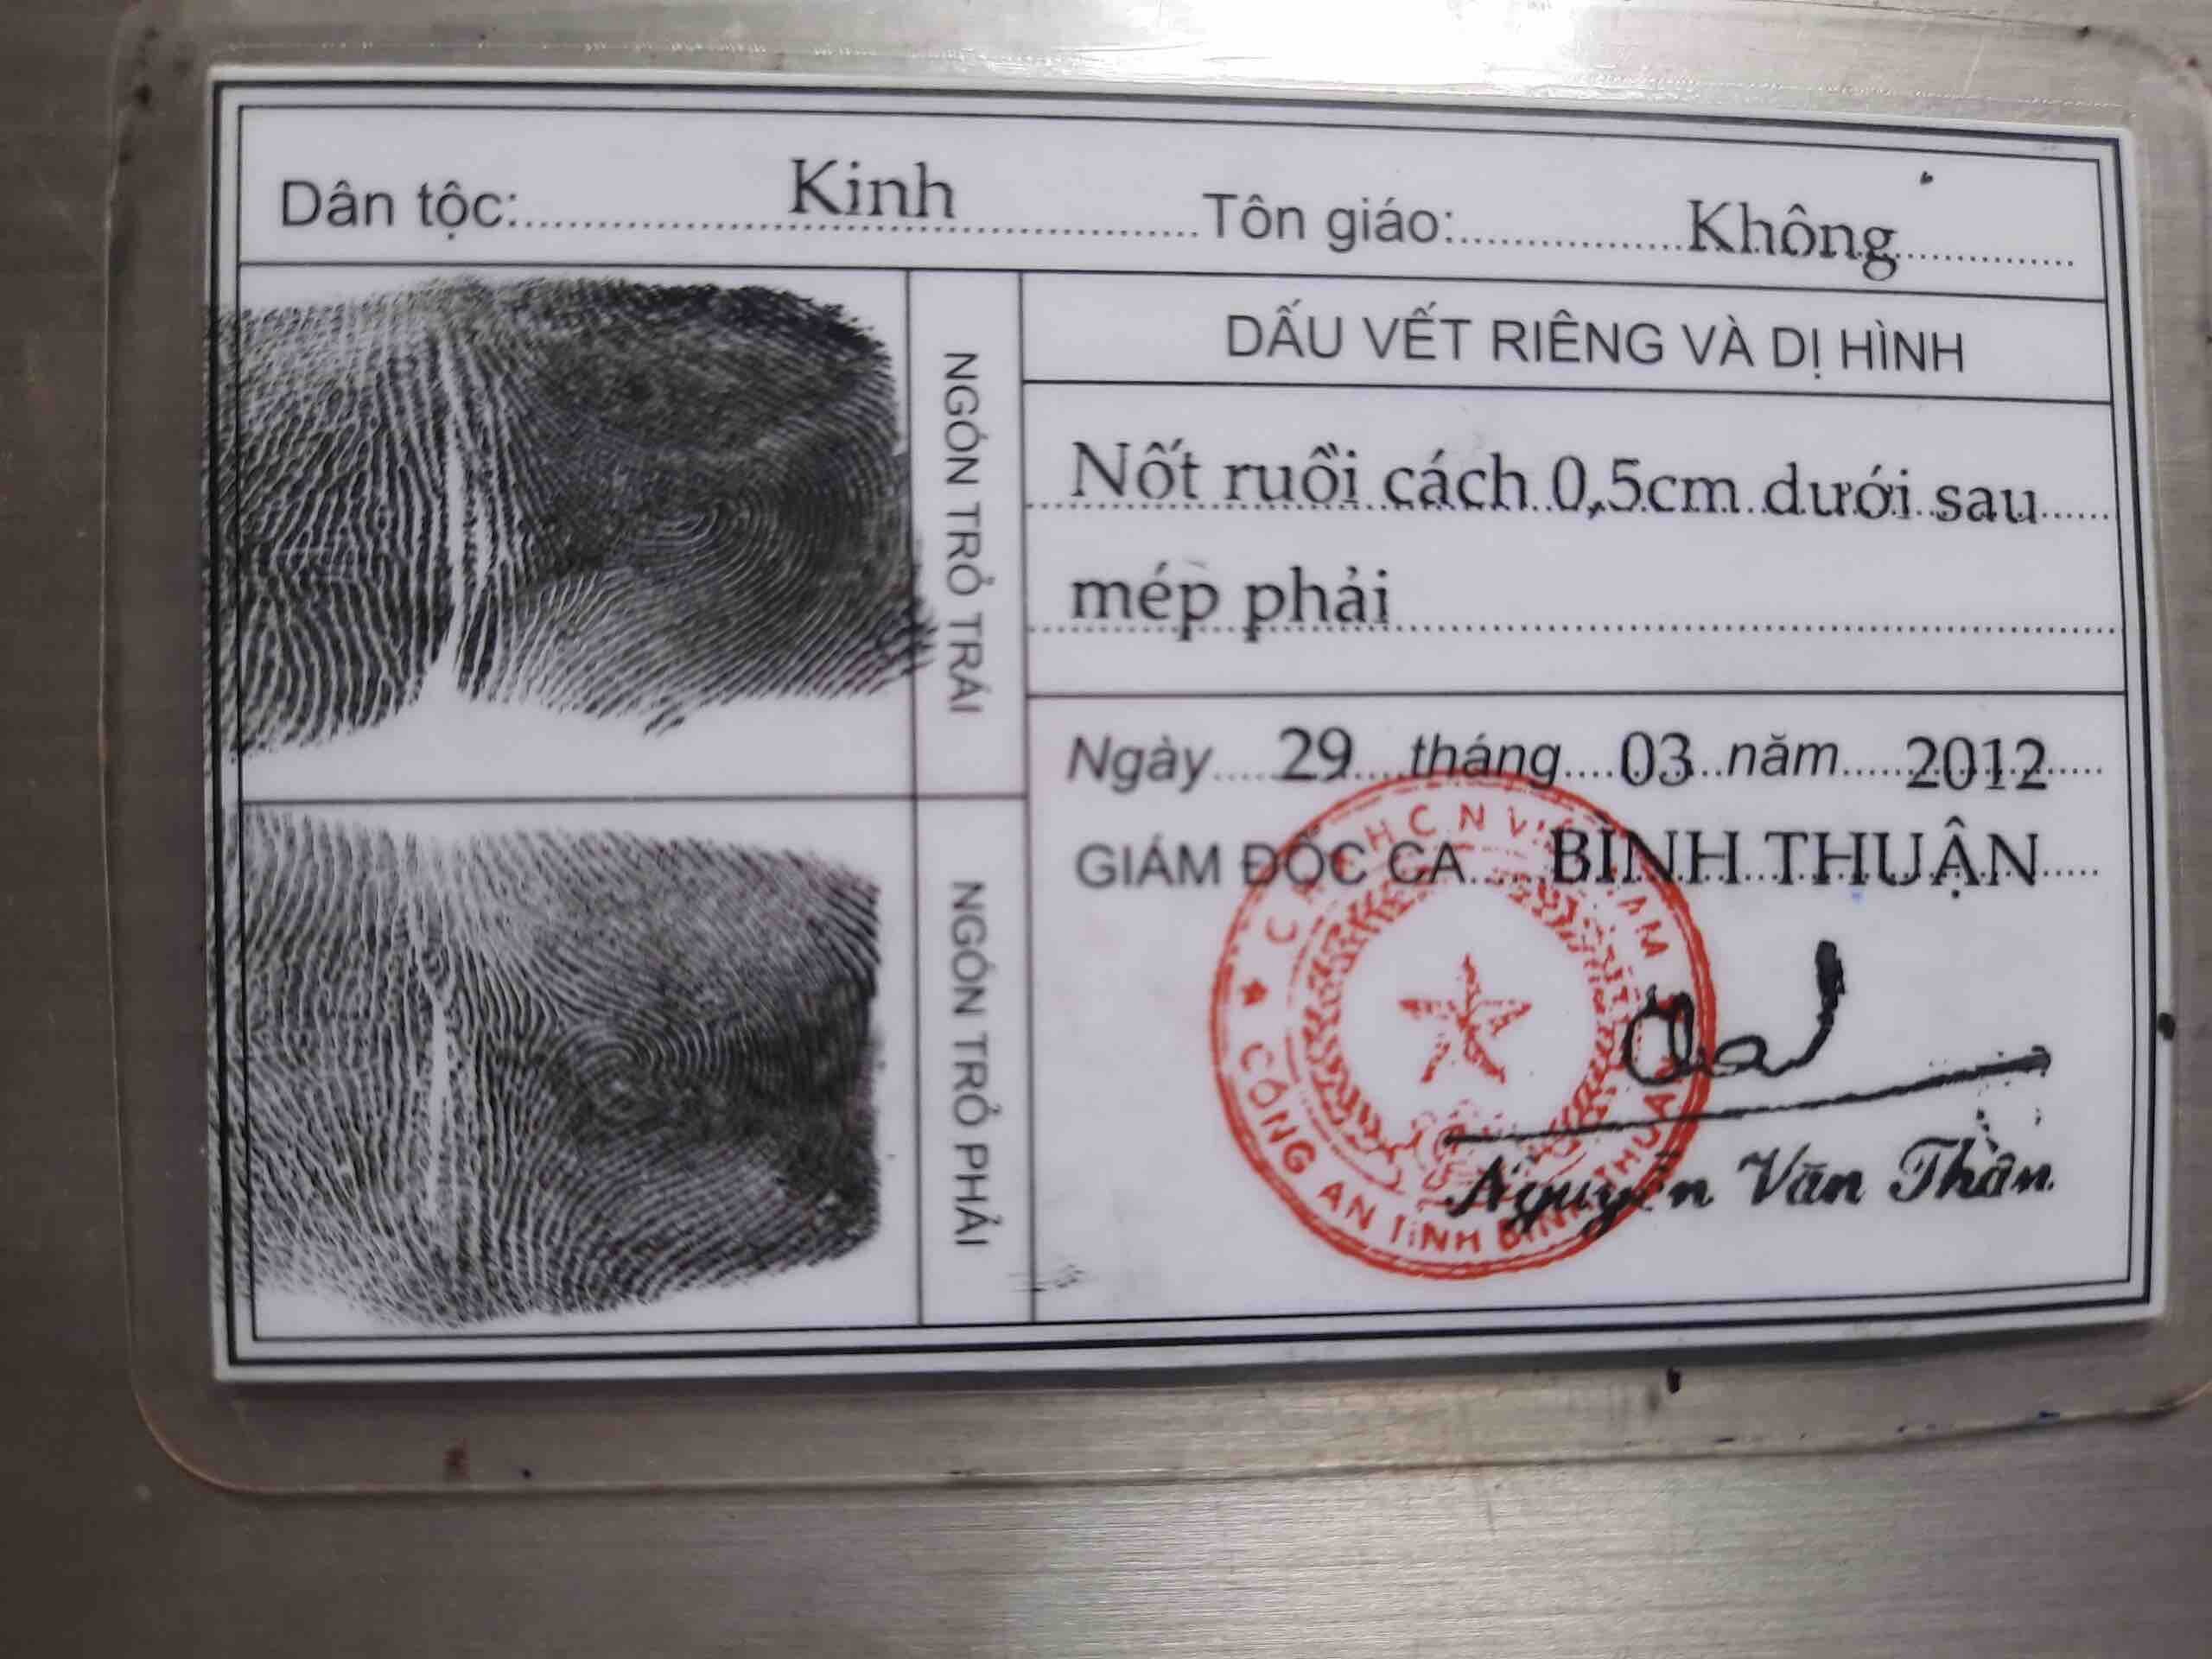 Dân tộc: Kinh Tôn giáo: Không
NGÓN TRỎ TRÁI
DẤU VẾT RIÊNG VÀ DỊ HÌNH
Nốt ruồi cách 0,5cm dưới sau
mép phải
Ngày 29 tháng 03 năm 2012
GIÁM ĐỐC CA BÌNH THUẬN
NGÓN TRỎ PHẢI
CÔNG AN TỈNH BÌNH THUẬN
Nguyễn Văn Thân